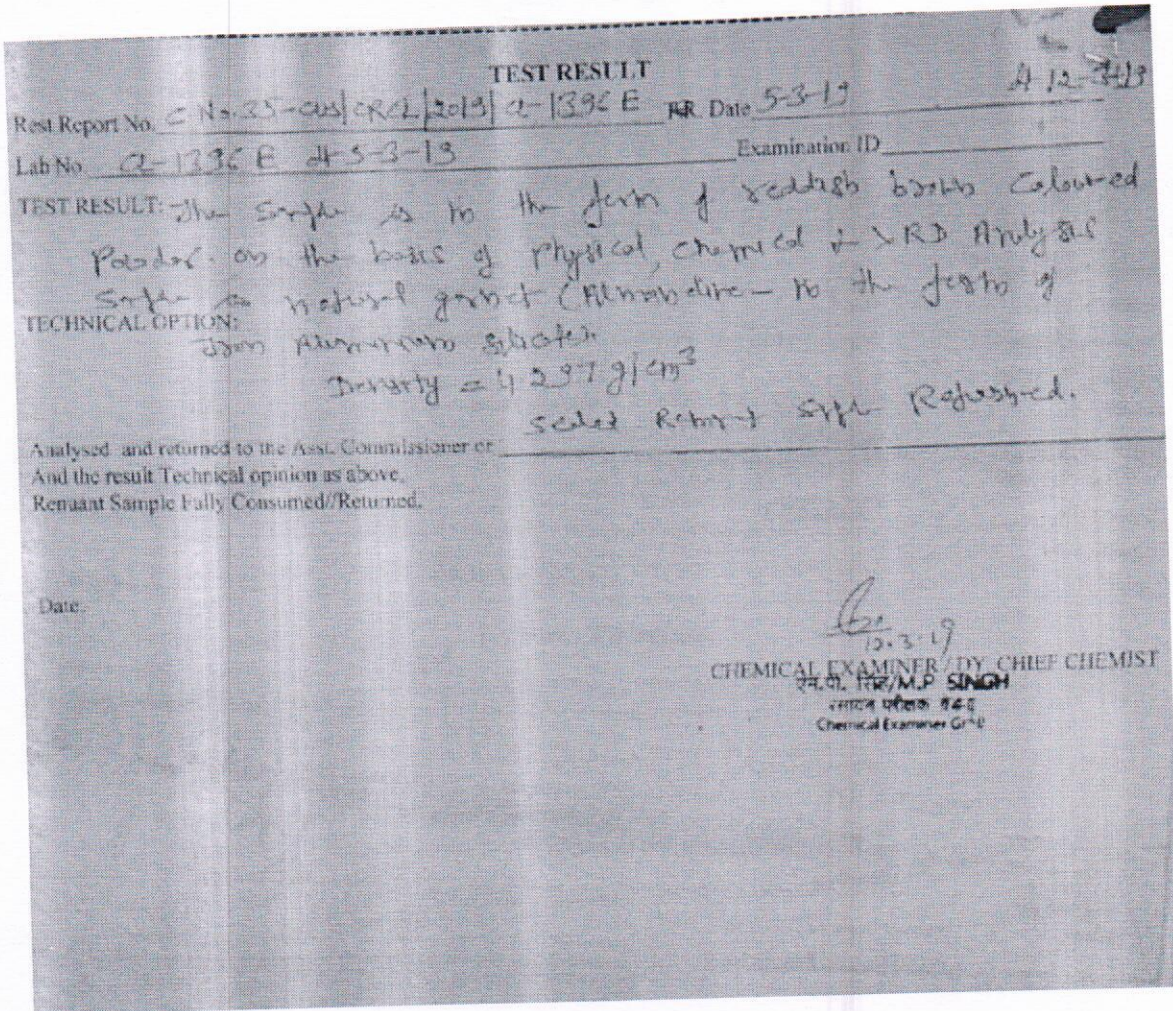 TEST RESULT
dt 12-3-19
Rest Report No. C No. 35-CUS/CRCL/2019/CL-1396 E RR. Date 5-3-19
Lab No. CL-1396 E dt 5-3-19 Examination ID
TEST RESULT: The Sample is in the form of reddish brown Coloured
Powder. on the basis of Physical, chemical & XRD Analysis
Sample is natural garnet (Almandine - in the form of
TECHNICAL OPTION:
Iron Aluminium Silicate).
Density = 4.297 g/cm³
Sealed Remnant Sample Returned.
Analysed and returned to the Asst. Commissioner or
And the result Technical opinion as above.
Renuant Sample Fally Consumed//Returned.
Date.
12.3.19
CHEMICAL EXAMINER / DY. CHIEF CHEMIST
एम.पी. सिंह/M.P SINGH
रसायन परीक्षक
Chemical Examiner